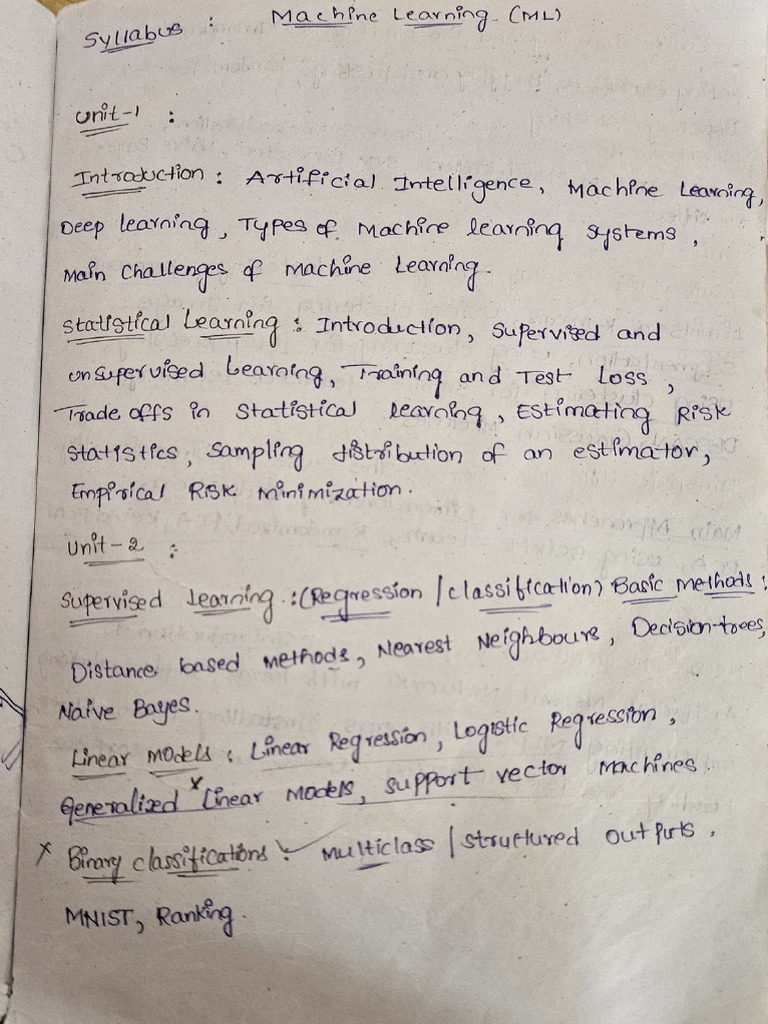 Syllabus : Machine Learning (ML)
Unit-1 :
Introduction : Artificial Intelligence, Machine Learning,
Deep learning, Types of Machine learning systems,
Main challenges of Machine Learning.
Statistical Learning : Introduction, Supervised and
unsupervised Learning, Training and Test Loss,
Trade offs in Statistical learning, Estimating Risk
Statistics, Sampling distribution of an estimator,
Empirical Risk Minimization.
Unit-2 :
Supervised Learning : (Regression / classification) Basic Methods :
Distance based methods, Nearest Neighbours, Decision-trees,
Naive Bayes.
Linear Models : Linear Regression, Logistic Regression,
Generalized Linear Models, Support vector Machines.
x Binary classifications : Multiclass / structured outputs,
MNIST, Ranking.